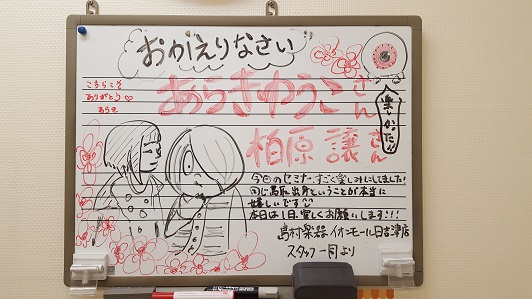 おかえりなさい
あらきゆうこさん
柏原 譲さん
こちらこそ
ありがとう♡
あらき
楽しかった!!
今回のセミナーすごく楽しみにしてました!
同じ鳥取出身ということが本当に
嬉しいです
本日は1日、宜しくお願いします!!!
島村楽器 イオンモール日吉津店
スタッフ一同より